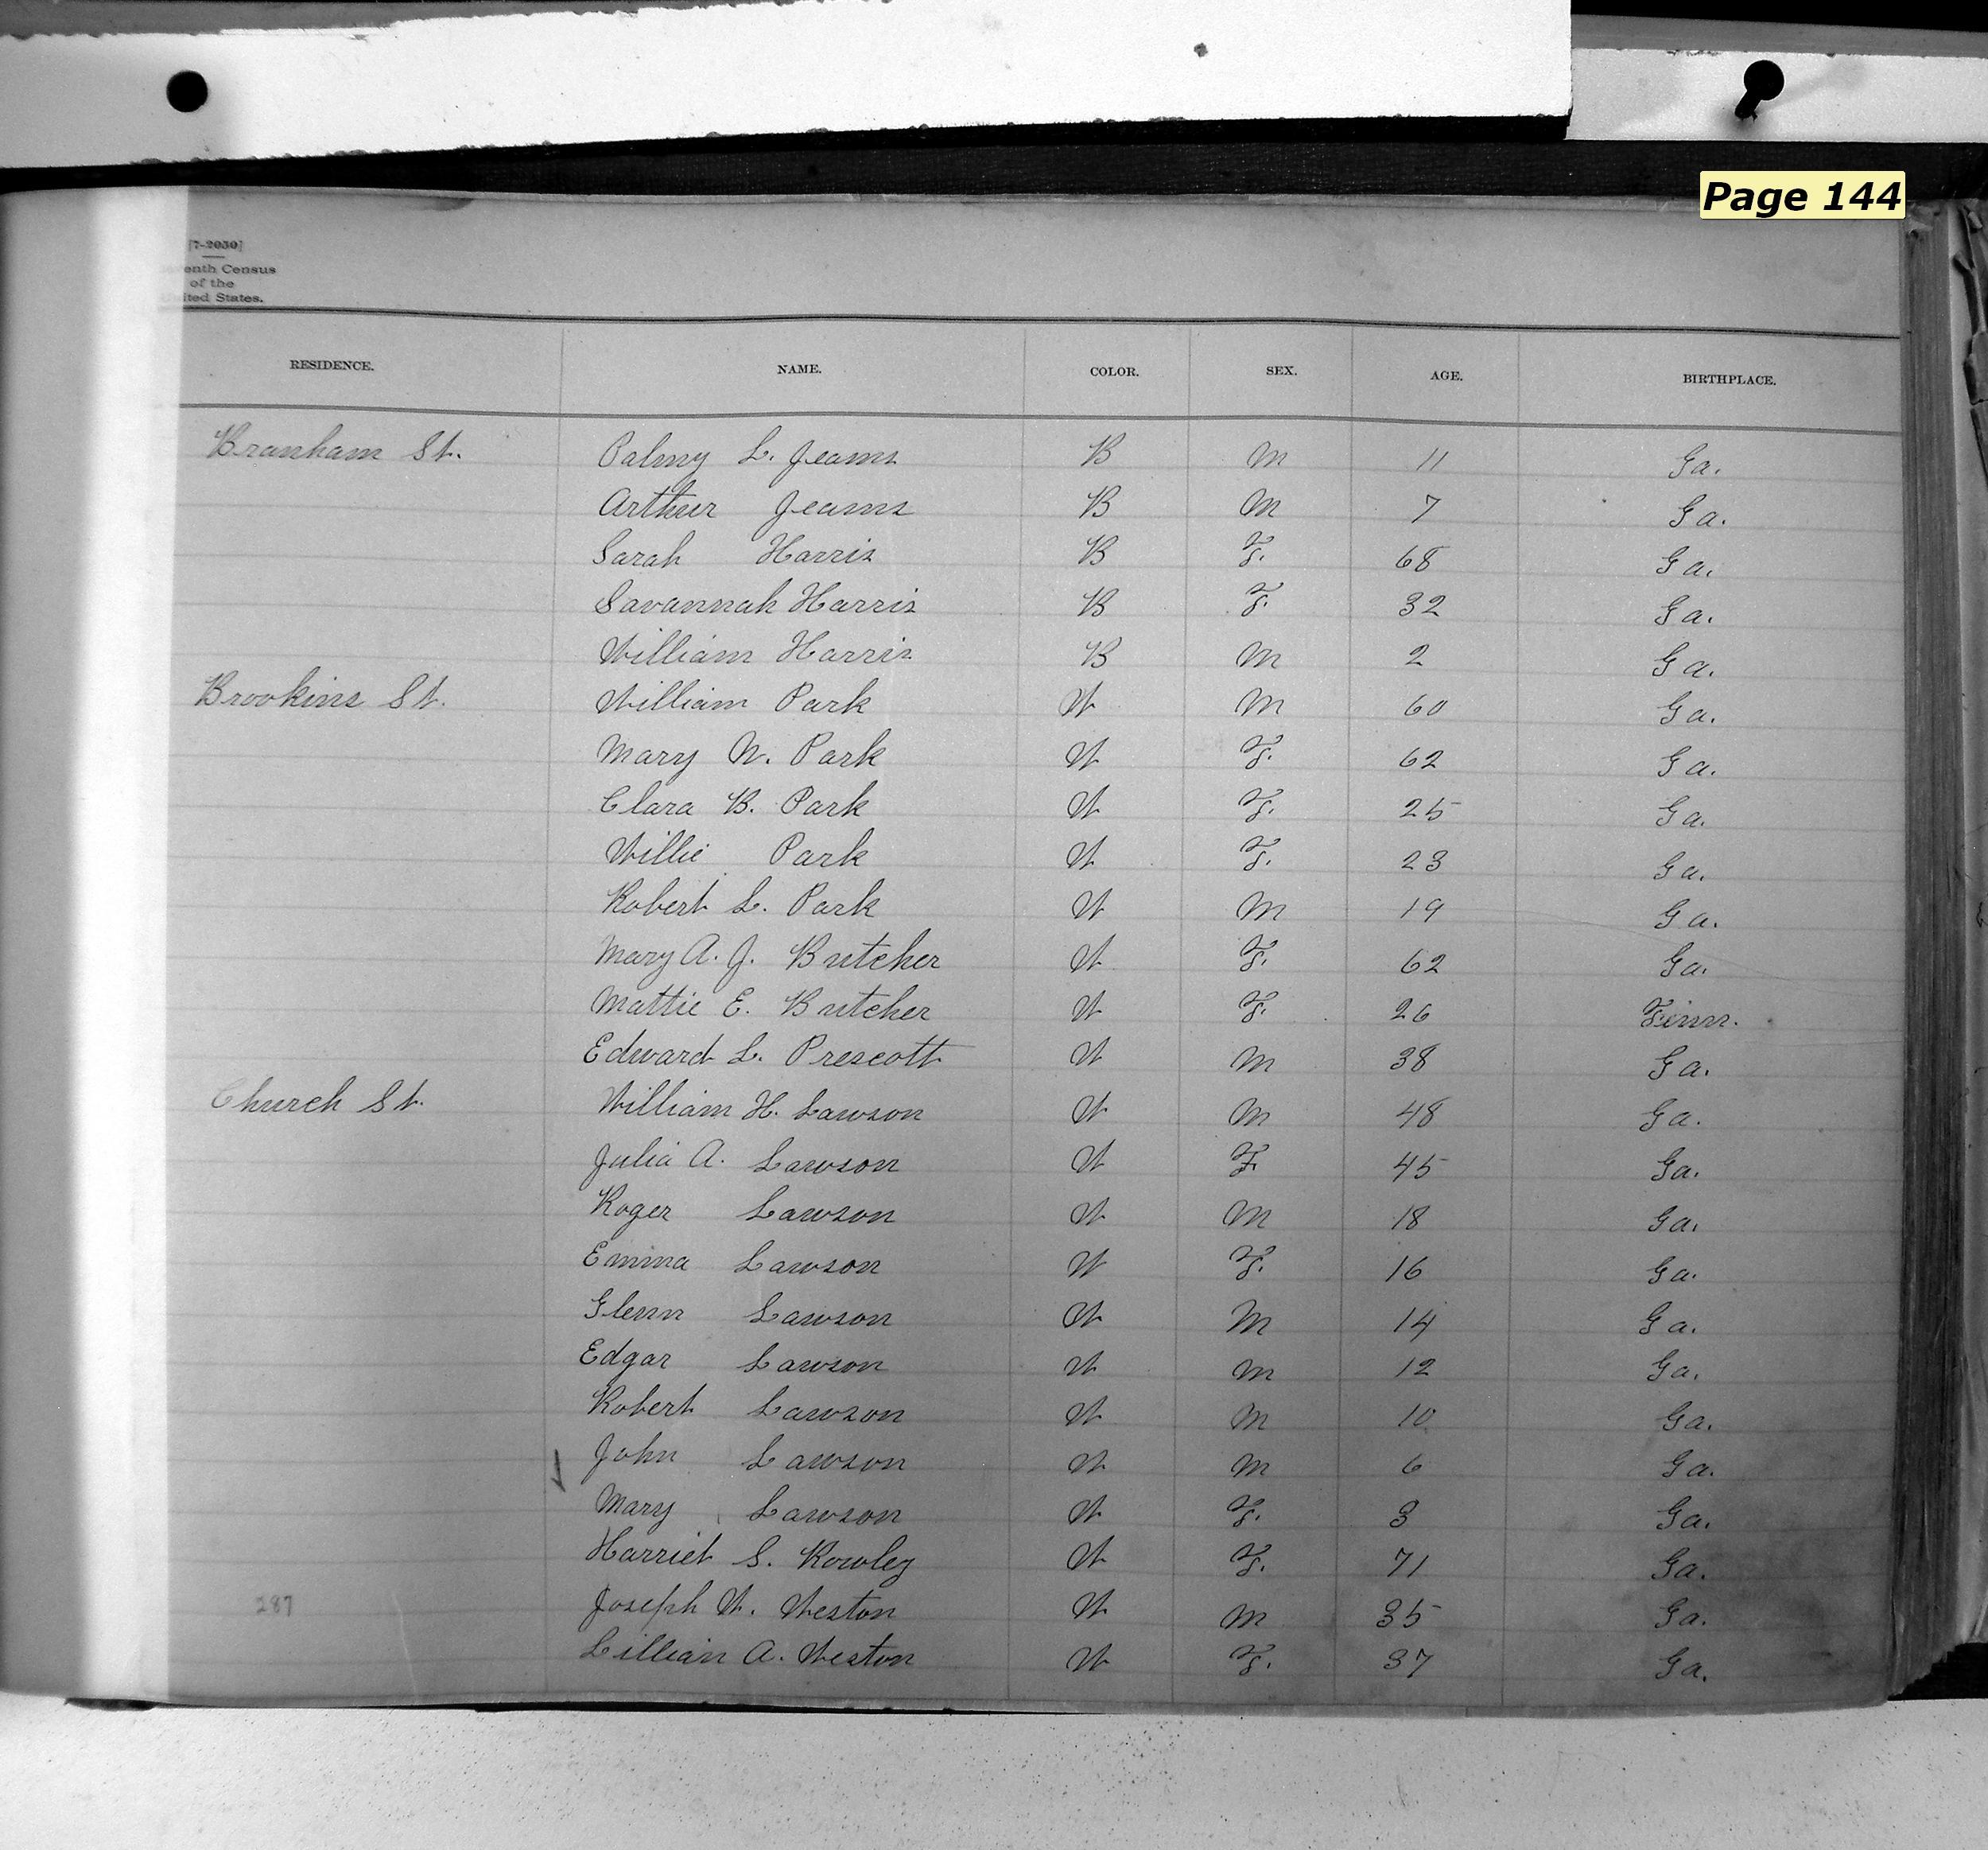 Page 144
[7-2030]
enth Census
of the
ited States.
RESIDENCE. NAME. COLOR. SEX. AGE. BIRTHPLACE.
Branham St. Palmy L. Jeams B M 11 Ga.
Arthur Jeams B M 7 Ga.
Sarah Harris B F. 68 Ga.
Savannah Harris B F. 32 Ga.
William Harris B M 2 Ga.
Brookins St. William Park W M 60 Ga.
Mary W. Park W F. 62 Ga.
Clara B. Park W F. 25 Ga.
Willie Park W F. 23 Ga.
Robert L. Park W M 19 Ga.
Mary A. J. Butcher W F. 62 Ga.
Mattie E. Butcher W F. 26 Tenn.
Edward L. Prescott W M 38 Ga.
Church St. William H. Lawson W M 48 Ga.
Julia A. Lawson W F. 45 Ga.
Roger Lawson W M 18 Ga.
Emma Lawson W F. 16 Ga.
Glenn Lawson W M 14 Ga.
Edgar Lawson W M 12 Ga.
Robert Lawson W M 10 Ga.
John Lawson W M 6 Ga.
Mary Lawson W F. 3 Ga.
Harriet S. Rowley W F. 71 Ga.
287 Joseph W. Weston W M 35 Ga.
Lillian A. Weston W F. 37 Ga.